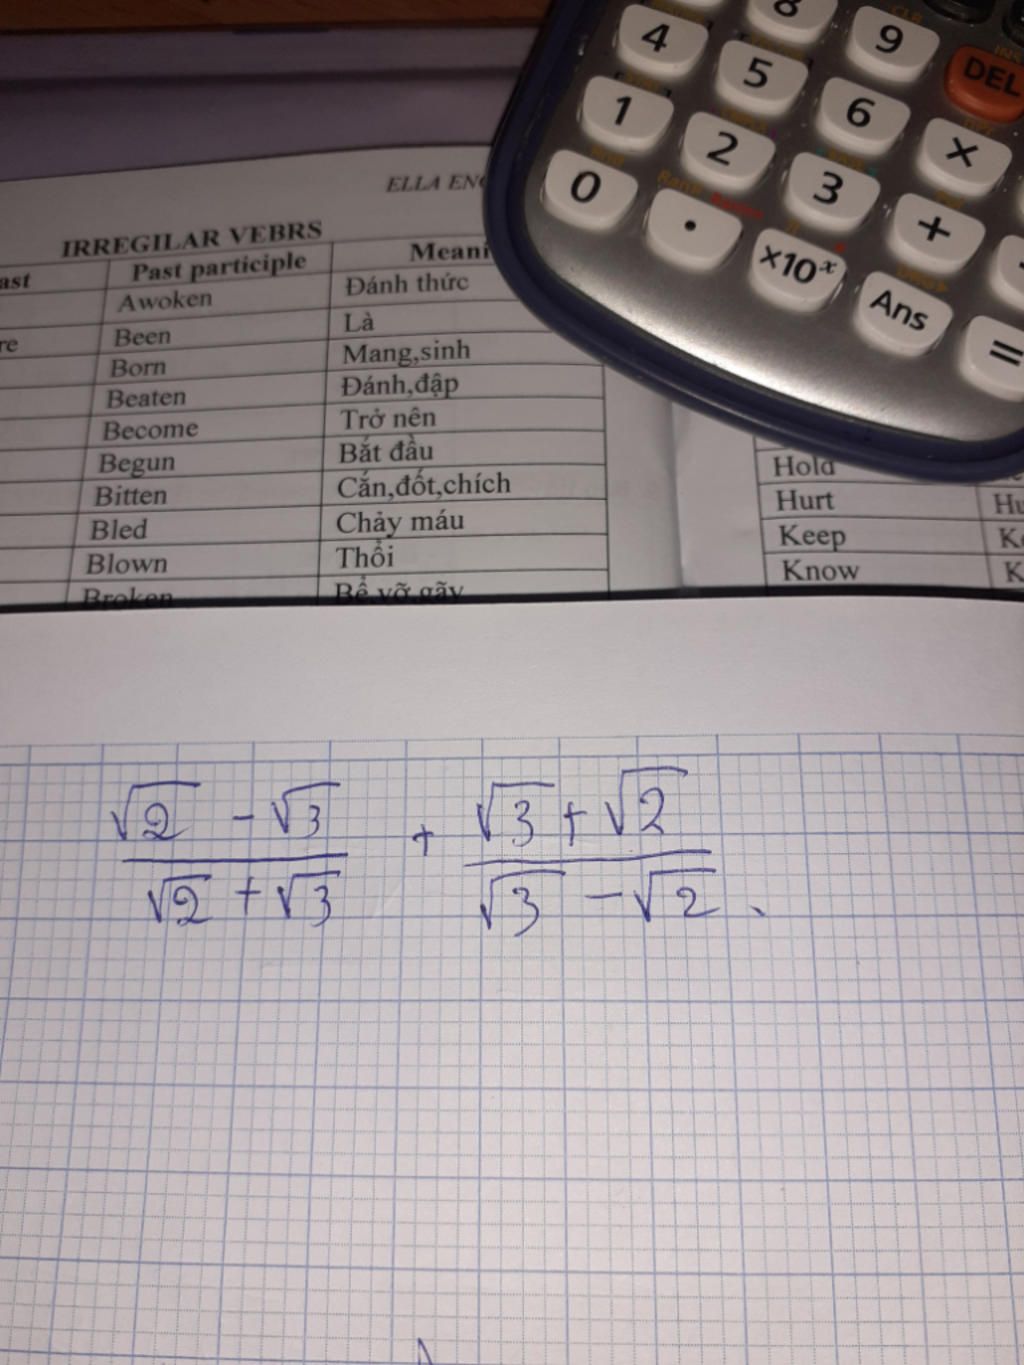 8
9
CLR
INS
DEL
4
5
6
×
1
2
3
+
0
•
×10ˣ
Ans
=
Ran#
ELLA EN
IRREGILAR VEBRS
ast Past participle Meani
Awoken Đánh thức
re Been Là
Born Mang,sinh
Beaten Đánh,đập
Become Trở nên
Begun Bắt đầu
Bitten Cắn,đốt,chích
Bled Chảy máu
Blown Thổi
Broken Bể,vỡ,gãy
Hold
Hurt Hu
Keep Ke
Know K
√2 - √3 / √2 + √3 + √3 + √2 / √3 - √2 .